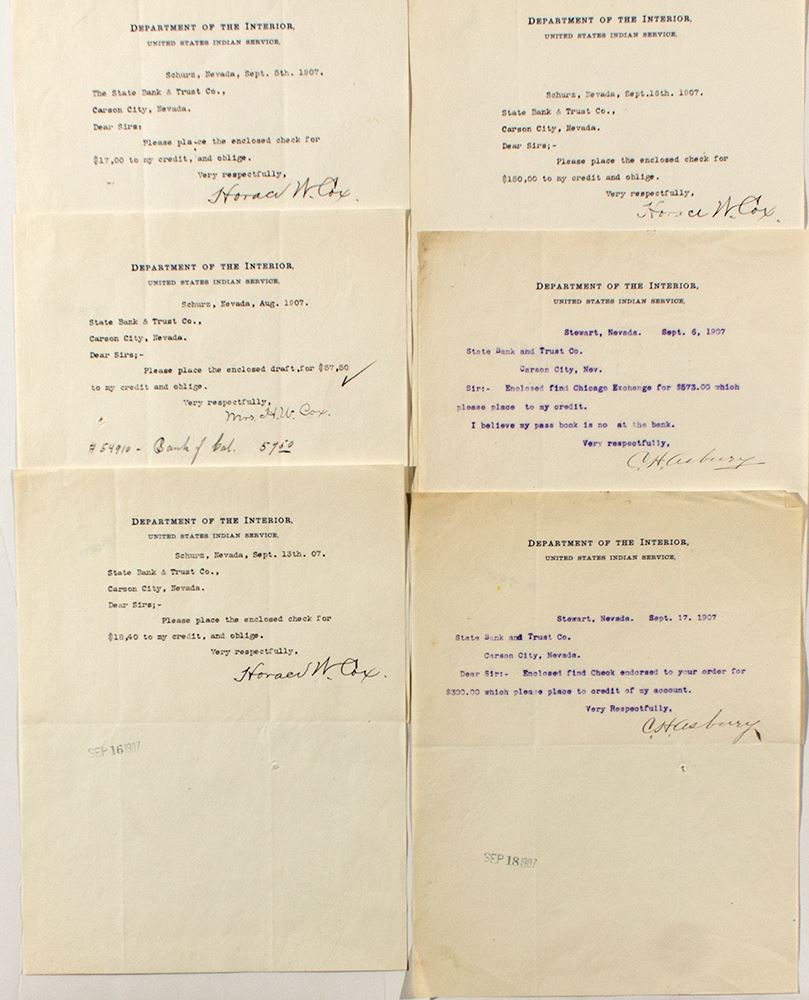 DEPARTMENT OF THE INTERIOR,
UNITED STATES INDIAN SERVICE,
Schurz, Nevada, Sept. 5th. 1907.
The State Bank & Trust Co.,
Carson City, Nevada.
Dear Sirs:
Please place the enclosed check for
$17,00 to my credit, and oblige.
Very respectfully,
Horace W. Cox.
DEPARTMENT OF THE INTERIOR,
UNITED STATES INDIAN SERVICE,
Schurz, Nevada, Aug. 1907.
State Bank & Trust Co.,
Carson City, Nevada.
Dear Sirs;-
Please place the enclosed draft,for $57,50
to my credit and oblige.
Very respectfully,
Mrs. H. W. Cox.
#54910 - Bank of Cal. 57 50
DEPARTMENT OF THE INTERIOR,
UNITED STATES INDIAN SERVICE,
Schurz, Nevada, Sept. 13th. 07.
State Bank & Trust Co.,
Carson City, Nevada.
Dear Sirs;-
Please place the enclosed check for
$18,40 to my credit, and oblige.
Very respectfully,
Horace W. Cox.
SEP 16 1907
DEPARTMENT OF THE INTERIOR,
UNITED STATES INDIAN SERVICE,
Schurz, Nevada, Sept.16th. 1907.
State Bank & Trust Co.,
Carson City, Nevada.
Dear Sirs;-
Please place the enclosed check for
$150,00 to my credit and oblige.
Very respectfully,
Horace W. Cox.
DEPARTMENT OF THE INTERIOR,
UNITED STATES INDIAN SERVICE,
Stewart, Nevada. Sept. 6, 1907
State Bank and Trust Co.
Carson City, Nev.
Sir:- Enclosed find Chicago Exchange for $573.00 which
please place to my credit.
I believe my pass book is no at the bank.
Very respectfully,
C. H. Asbury
DEPARTMENT OF THE INTERIOR,
UNITED STATES INDIAN SERVICE,
Stewart, Nevada. Sept. 17. 1907
State Bank and Trust Co.
Carson City, Nevada.
Dear Sir:- Enclosed find Check endorsed to your order for
$300.00 which please place to credit of my account.
Very Respectfully,
C. H. Asbury
SEP 18 1907